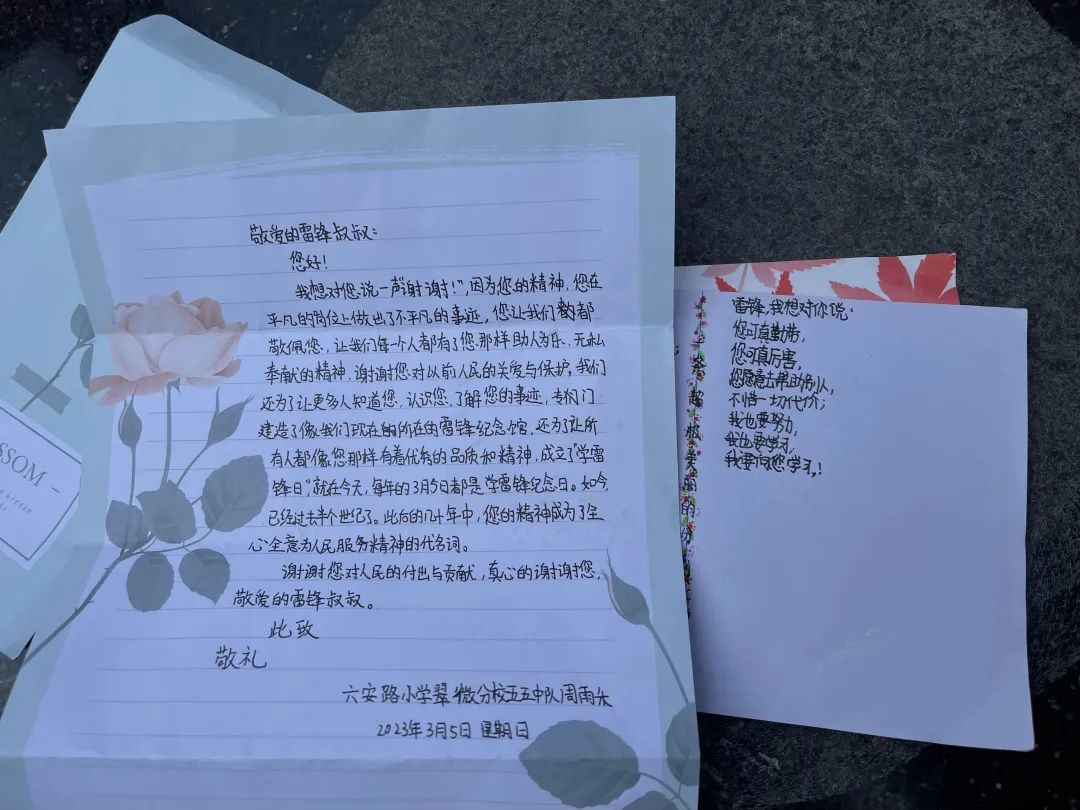 敬爱的雷锋叔叔:
您好!
我想对您说一声“谢谢!”,因为您的精神,您在
平凡的岗位上做出了不平凡的事迹,您让我们都
敬佩您,让我们每一个人都有了您那样助人为乐、无私
奉献的精神,谢谢您对以前人民的关爱与保护,我们
还为了让更多人知道您、认识您、了解您的事迹,专门
建造了像我们现在的所在的雷锋纪念馆,还为了让所
有人都像您那样有着优秀的品质和精神,成立了“学雷
锋日”,就在今天,每年的3月5日都是学雷锋纪念日。如今
已经过去半个世纪了。此后的几十年中,您的精神成为了全
心全意为人民服务精神的代名词。
谢谢您对人民的付出与贡献,真心的谢谢您,
敬爱的雷锋叔叔。
此致
敬礼
六安路小学翠微分校五五中队周雨乐
2023年3月5日 星期日
SSOM -
breeze
雷锋,我想对你说:
您可真勤劳,
您可真厉害,
您愿意去帮助别人,
不惜一切代价;
我也要努力,
我也要学习,
我要向您学习!